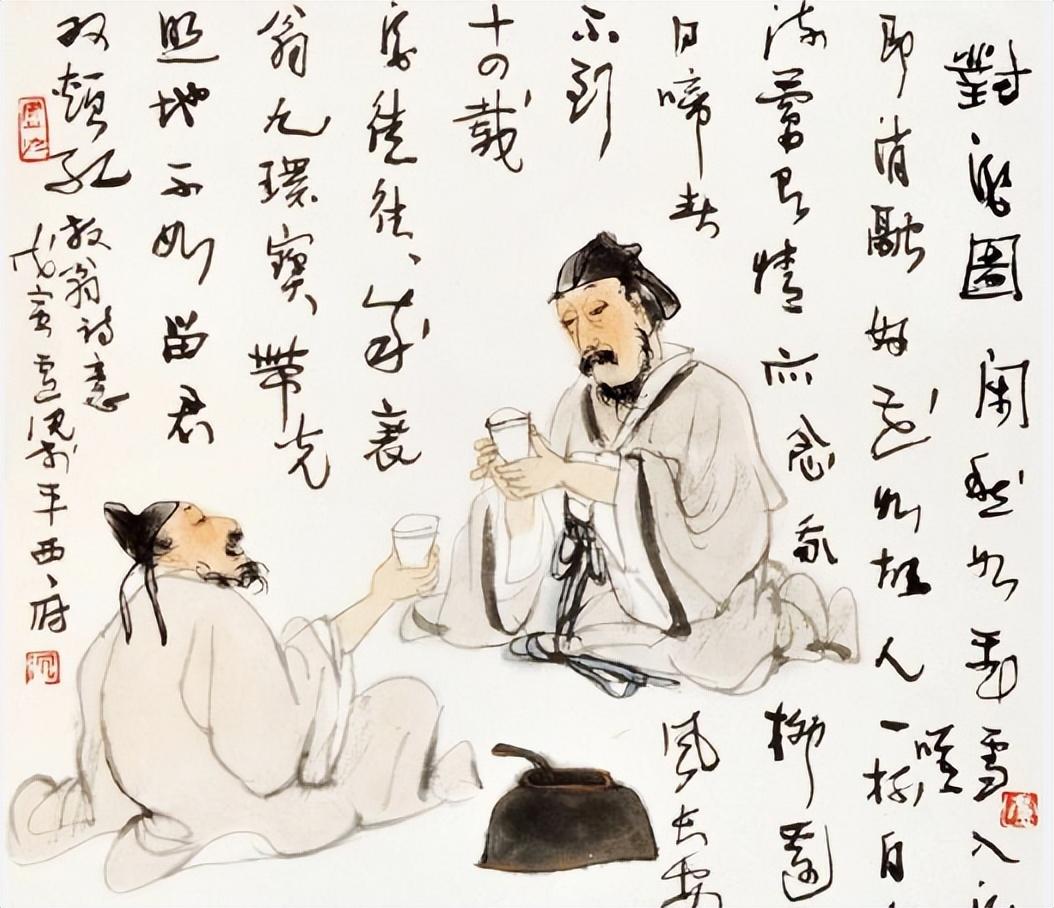 對酒圖 閑愁如飛雪入酒
即消融好花如故人一杯自
流鶯有情亦念我柳邊
日啼春風長安
不到
十四載
徒往往成衰
翁九環寶帶光
照地不如留君
双頰紅
放翁詩意
戊寅盧沉於平西府